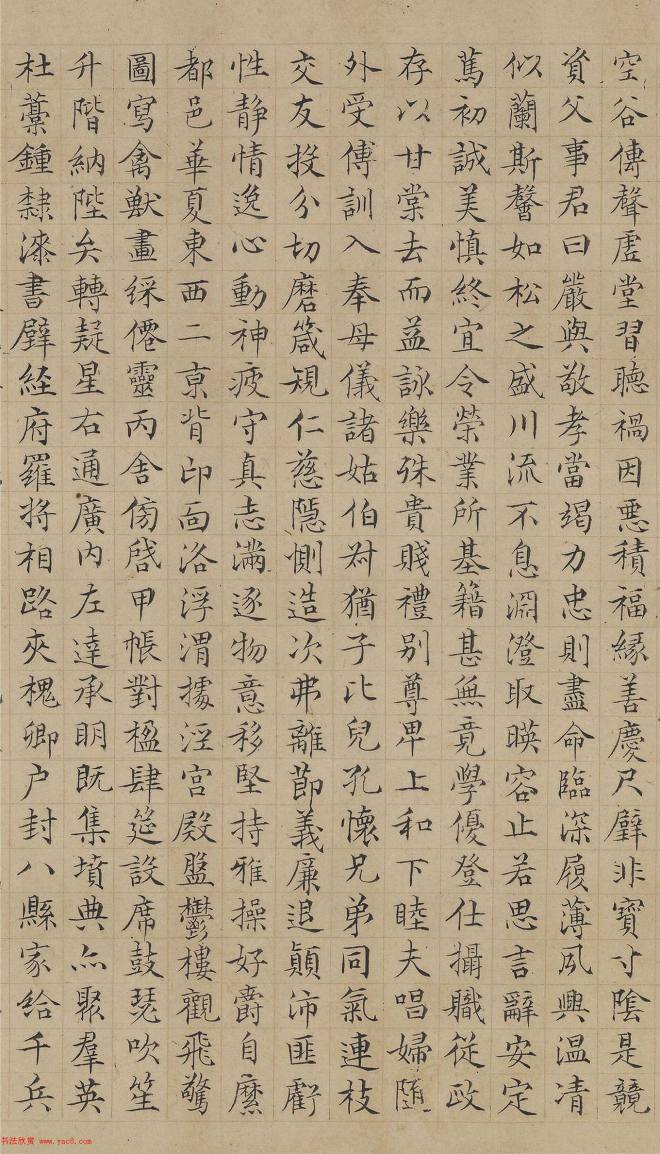 空谷傳聲虛堂習聽禍因惡積福緣善慶尺璧非寶寸陰是競
資父事君曰嚴與敬孝當竭力忠則盡命臨深履薄夙興温清
似蘭斯馨如松之盛川流不息淵澄取暎容止若思言辭安定
篤初誠美慎終宜令榮業所基籍甚無竟學優登仕攝職從政
存以甘棠去而益詠樂殊貴賤禮别尊卑上和下睦夫唱婦隨
外受傅訓入奉母儀諸姑伯叔猶子比兒孔懷兄弟同氣連枝
交友投分切磨箴規仁慈隱惻造次弗離節義廉退顛沛匪虧
性静情逸心動神疲守真志滿逐物意移堅持雅操好爵自縻
都邑華夏東西二亰背邙面洛浮渭據涇宮殿盤鬱樓觀飛驚
圖寫禽獸畫綵僊靈丙舍傍啓甲帳對楹肆筵設席鼓瑟吹笙
升階納陛弁轉疑星右通廣内左達承明既集墳典亦聚羣英
杜藁鍾隸漆書壁経府羅將相路夾槐卿户封八縣家給千兵
书法欣赏 www.yac8.com